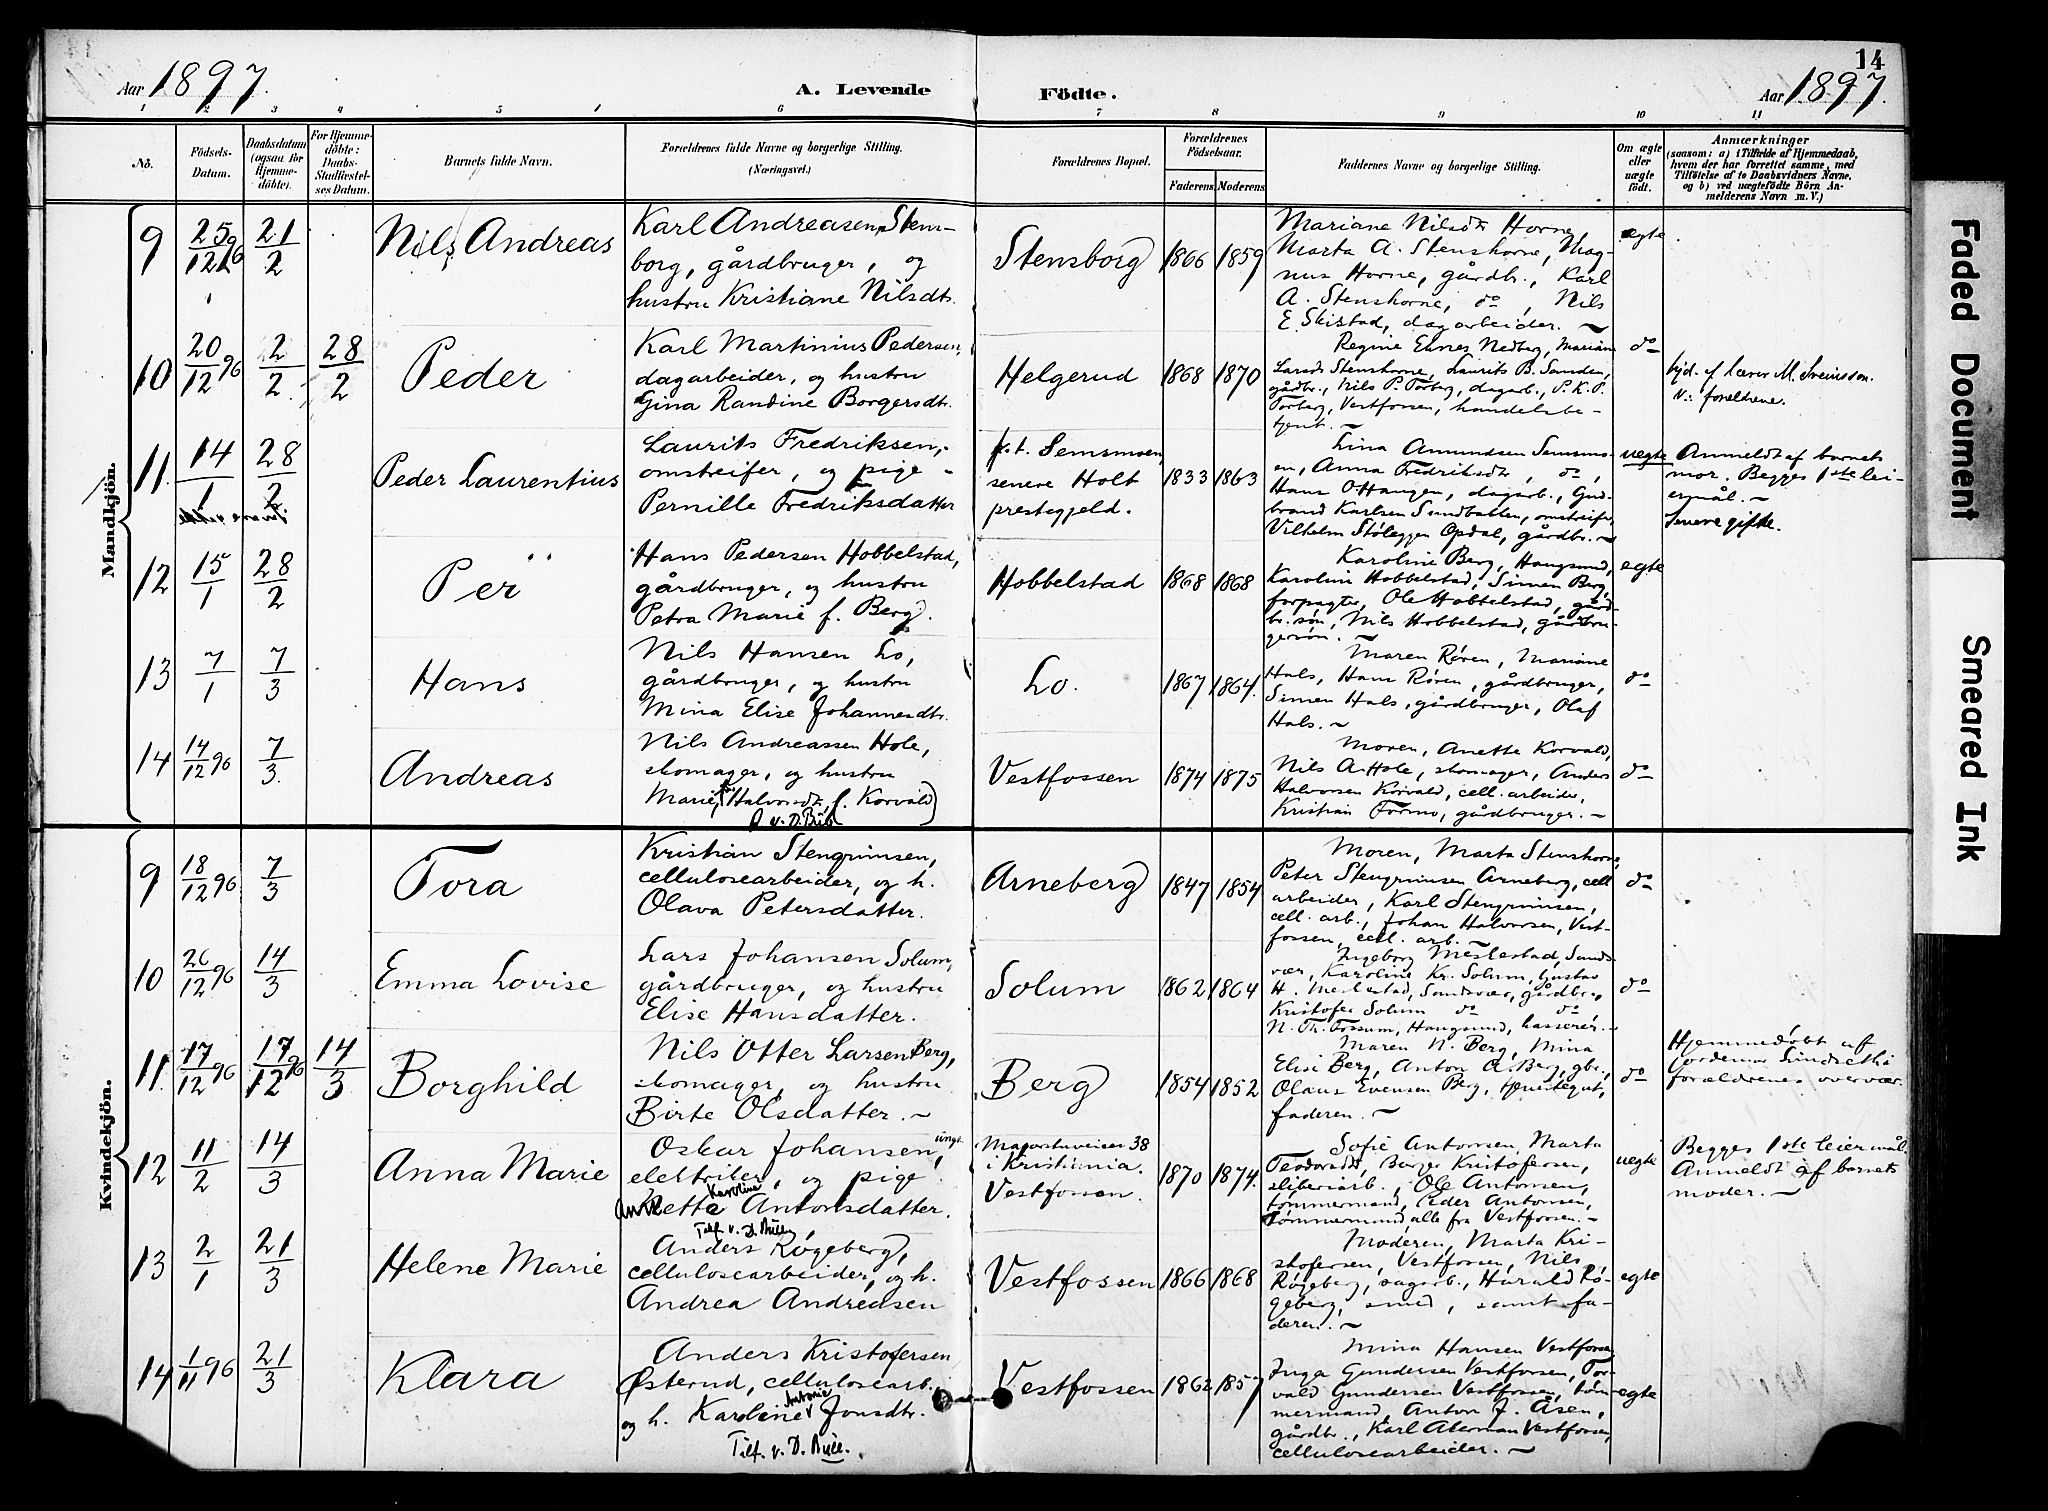 14
Aar 1897.
A. Levende
Födte.
Aar 1897.
1 2 3 4 5 6 7 8 9 10 11
No.
Födsels-Datum.
Daabsdatum (ogsaa for Hjemme-döbte).
For Hjemme-döbte: Daabs-Stadfæstel-ses Datum.
Barnets fulde Navn.
Forældrenes fulde Navne og borgerlige Stilling.
(Næringsvei.)
Forældrenes Bopæl.
Forældrenes Födselsaar.
Faderens Moderens
Faddernes Navne og borgerlige Stilling.
Om ægte eller uægte födt.
Anmærkninger
(saasom: a) i Tilfælde af Hjemmedaab, hvem der har forrettet samme, med Tilföielse af to Daabsvidners Navne, og b) ved uægtefödte Börn An-melderens Navn m. V.)
Mandkjön.
9 25/12 96 21/2 Nils Andreas
Karl Andreasen Stens-
borg, gårdbruger, og
hustru Kristiane Nilsdtr.
Stensborg 1866 1859
Mariane Nilsdtr Horne,
Marta A. Stenshorne, Mag-
nus Horne, gårdbr., Karl
A. Stenshorne, do, Nils
E. Skistad, dagarbeider. ~
egte
10 20/12 96 2/2 28/2 Peder
Karl Martinius Pedersen,
dagarbeider, og hustru
Gina Randine Borgersdtr.
Helgerud 1868 1870
Regine Nedberg, Marian
Larsdtr Stenshorne, Laurits B. Sanden,
gårdbr., Nils P. Torberg, dagarb., P. K. P.
Torberg, Vestfossen, handelsbe-
tjent. ~
do
hjd. af lærer M. Sveinsson.
V.: foreldrene.
11. 14/1 28/2 Peder Laurentius
Laurits Fredriksen,
omstreifer, og pige
Pernille Fredriksdatter
p.t. Semsmoen,
senere Holt
prestegjeld.
1833 1863
Lina Amundsen Semsmo-
en, Anna Fredriksdtr, do,
Hans O. Haugen, dagarb., Gud-
brand Karlsen Sundbakken, omstreifer,
Vilhelm Støleggen Opdal, gårdbr. ~
uegte
Anmeldt af barnets
mor. Begges 1ste lei-
ermål. ~
Senere gifte.
12 15/1 28/2 Per
Hans Pedersen Hobbelstad,
gårdbruger, og hustru
Petra Marie f. Berg.
Hobbelstad 1868 1868
Karoline Berg, Haugsund,
Karoline Hobbelstad, Simen Berg,
forpagter, Ole Hobbelstad, gård-
br.søn, Nils Hobbelstad, gårdbru-
gersøn. ~
egte
13 7/1 7/3 Hans
Nils Hansen Lo,
gårdbruger, og hustru
Mina Elise Johannesdtr.
Lo. 1867 1864.
Maren Røren, Mariane
Hals, Hans Røren, gårdbruger,
Simen Hals, gårdbruger, Olaf
Hals. ~
do
14 14/12 96 7/3. Andreas
Nils Andreassen Hole,
skomager, og hustru
Marie (Halvorsdtr, f. Korvald)
v. D. Bull
Vestfossen 1874 1875
Moren, Anette Korvald,
Nils A. Hole, skomager, Anders
Halvorsen Korvald, cell. arbeider,
Kristian Formo, gårdbruger. ~
do
Kvindekjön.
9 18/12 96 7/3 Tora
Kristian Stengrimsen,
cellulosearbeider, og h.
Olava Petersdatter.
Arneberg 1847 1854
Moren, Marta Stenshorne,
Peter Stengrimsen Arneberg, cell
arbeider, Karl Stengrimsen,
cell. arb., Johan Halvorsen, Vest-
fossen, cell. arb. ~
do
10 26/12 96 14/3 Emma Lovise
Lars Johansen Solum,
gårdbruger, og hustru
Elise Hansdatter.
Solum 1862 1864
Ingeborg Meslestad, Sands-
vær, Karoline Kr. Solum, Gustav
H. Meslestad, Sandsvær, gårdbr.,
Kristofer Solum do do,
N. Th. Fossum, Haugsund, kasserer. ~
do
11. 17/12 96 17/12 96 14/3 Borghild
Nils Otter Larsen Berg,
skomager, og hustru
Birte Olsdatter. ~
Berg 1854 1852
Maren N. Berg, Mina
Elise Berg, Anton A. Berg, gbr.,
Olaus Evensen Berg, tjenestegut,
faderen. ~
do
Hjemmedøbt af
jordemor Sindseth i
forældrenes overvær.
12 11/2 14/3 Anna Marie
Oskar Johansen, ungk.
elektriker, og pige
Anette Karoline Antonsdatter.
Tilf. v. D. Bull
Majorstuveien 38
i Kristiania.
Vestfossen.
1870 1874.
Sofie Antonsen, Marta
Teodorsdtr, Børge Kristofersen,
sliberiarb., Ole Antonsen,
tømmermand, Peder Antonsen,
tømmermand, alle fra Vestfossen. ~
uegte
Begges 1ste leiermål.
Anmeldt af barnets
moder. ~
13 2/1 21/3 Helene Marie
Anders Røgeberg,
cellulosearbeider, og h.
Andrea Andreasen
Vestfossen 1866 1868
Moderen, Marta Kri-
stofersen, Vestfossen, Nils
Røgeberg, sagarb., Harald Rø-
geberg, smed, samt fa-
deren. ~
egte
14 1/11 96 21/3 Klara
Anders Kristofersen
Østerud, cellulosearb.
og h. Karoline Antonie Jonsdtr.
Tilf. v. D. Bull.
Vestfossen 1862 1857
Mina Hansen Vestfossen,
Inga Gundersen Vestfossen, Tor-
vald Gundersen Vestfossen, tøm-
mermand, Anton J. Åsen,
gårdbr., Karl Akerman Vestfossen,
cellulosearbeider. ~
egte
Faded Document
Smeared Ink